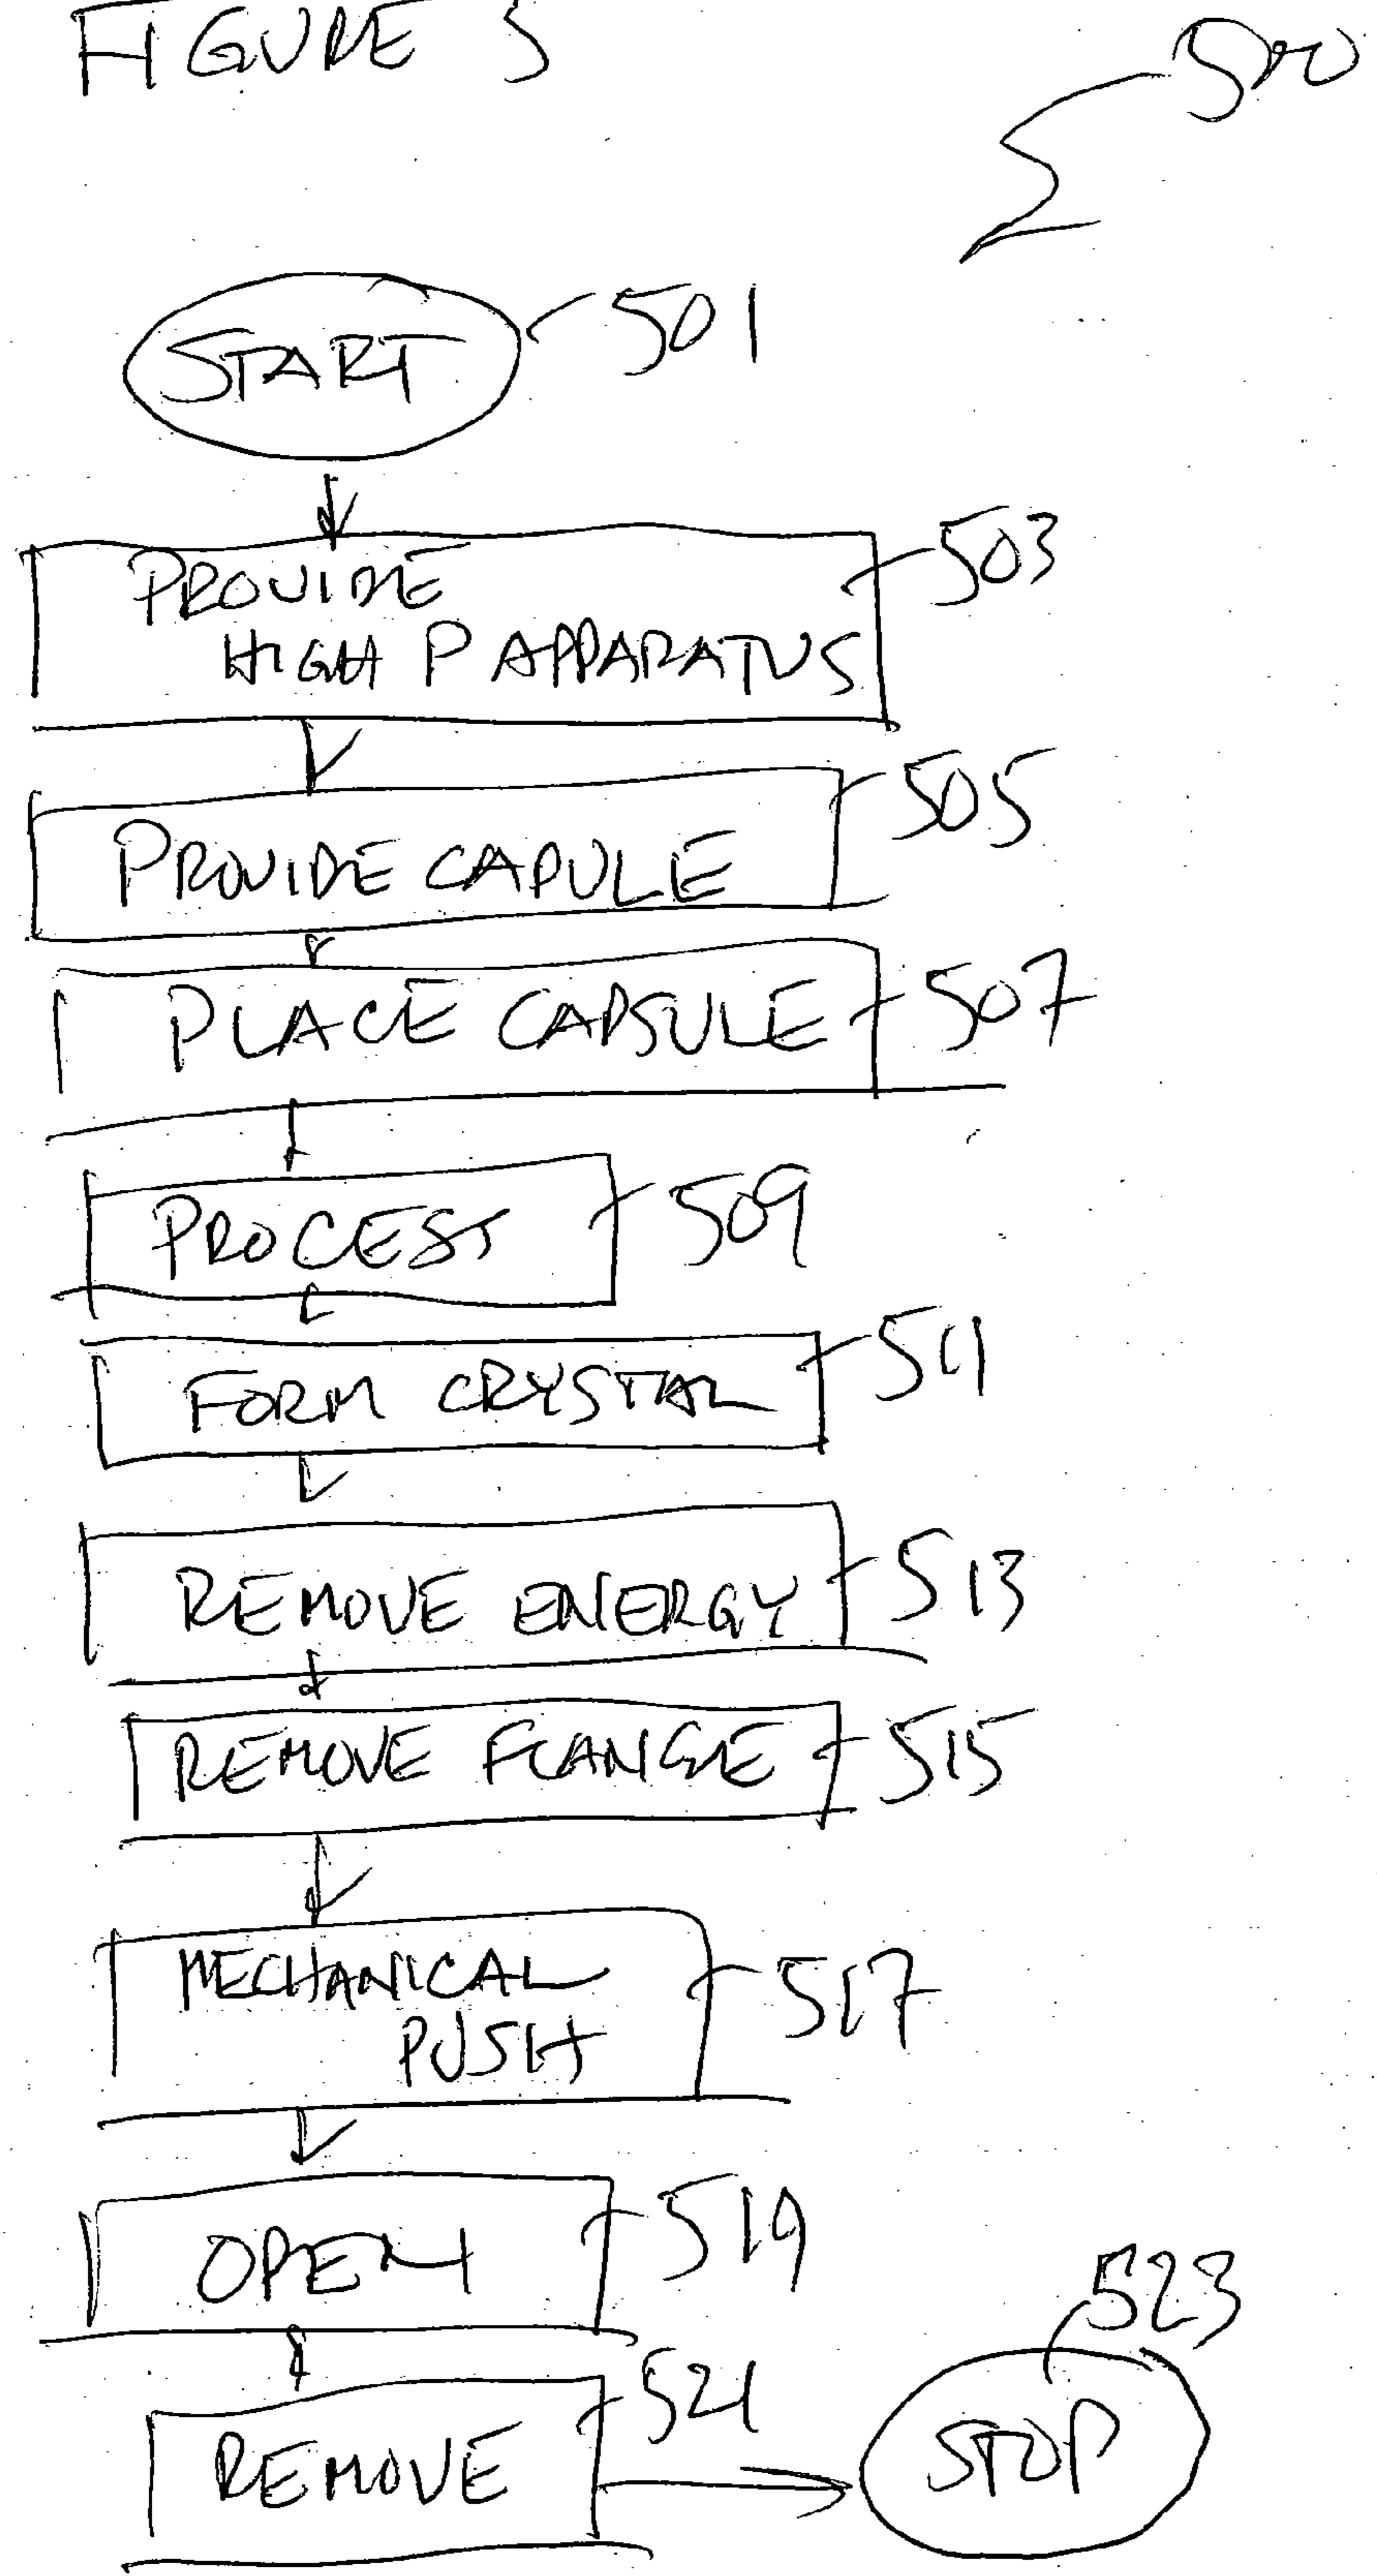 FIGURE 5
500
START
501
PROVIDE
HIGH P APPARATUS
503
PROVIDE CAPULE
505
PLACE CAPSULE
507
PROCESS
509
FORM CRYSTAL
511
REMOVE ENERGY
513
REMOVE FLANGE
515
MECHANICAL
PUSH
517
OPEN
519
523
REMOVE
521
STOP